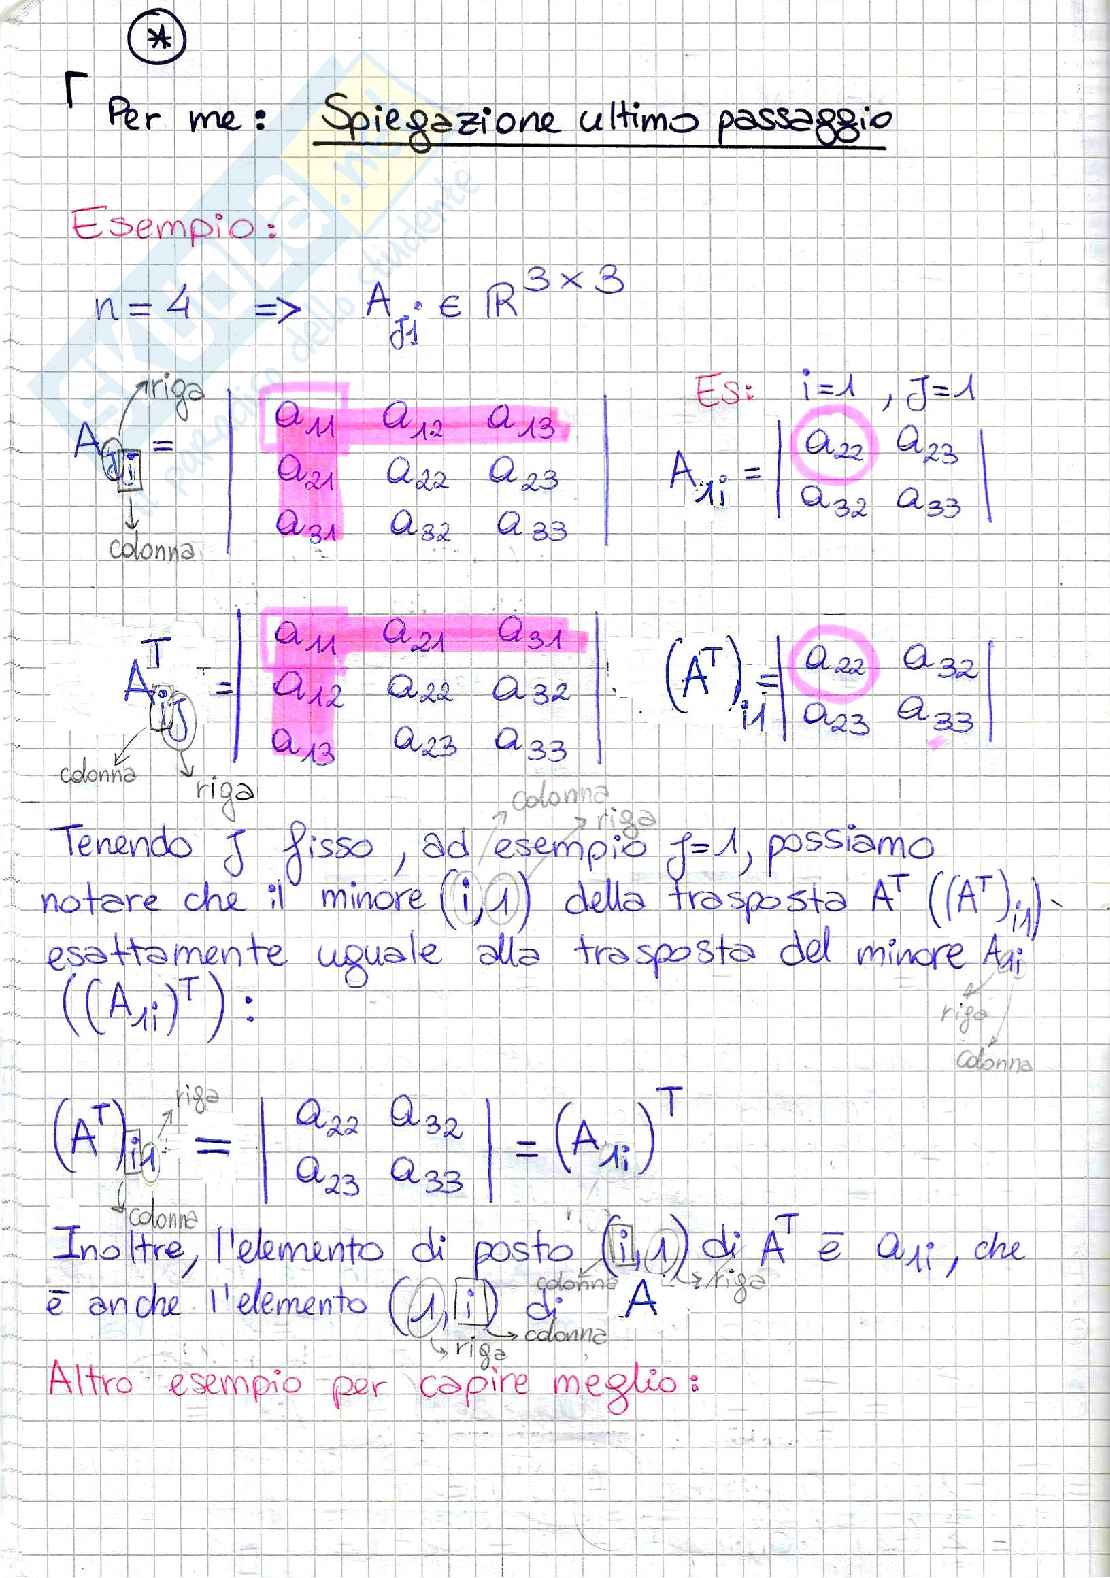 *
Per me: Spiegazione ultimo passaggio
Esempio:
n = 4 => A_{ji} ∈ ℝ^{3×3}
riga
A_{ji} = | a11 a12 a13 |
| a21 a22 a23 |
| a31 a32 a33 |
colonna
Es: i=1 , J=1
A_{1i} = | a22 a23 |
| a32 a33 |
A^T_{iJ} = | a11 a21 a31 |
| a12 a22 a32 |
| a13 a23 a33 |
colonna riga
(A^T)_{i1} = | a22 a32 |
| a23 a33 |
colonna
riga
Tenendo J fisso, ad esempio J=1, possiamo
notare che il minore (i,1) della trasposta A^T ((A^T)_{i1}) -
esattamente uguale alla trasposta del minore A_{1i}
((A_{1i})^T):
riga
colonna
riga
(A^T)_{i1} = | a22 a32 | = (A_{1i})^T
| a23 a33 |
colonna
Inoltre, l'elemento di posto (i,1) di A^T ē a_{1i}, che
colonna riga
ē anche l'elemento (1,i) di A
riga colonna
Altro esempio per capire meglio:
SKUOLA.net
il paradiso dello studente